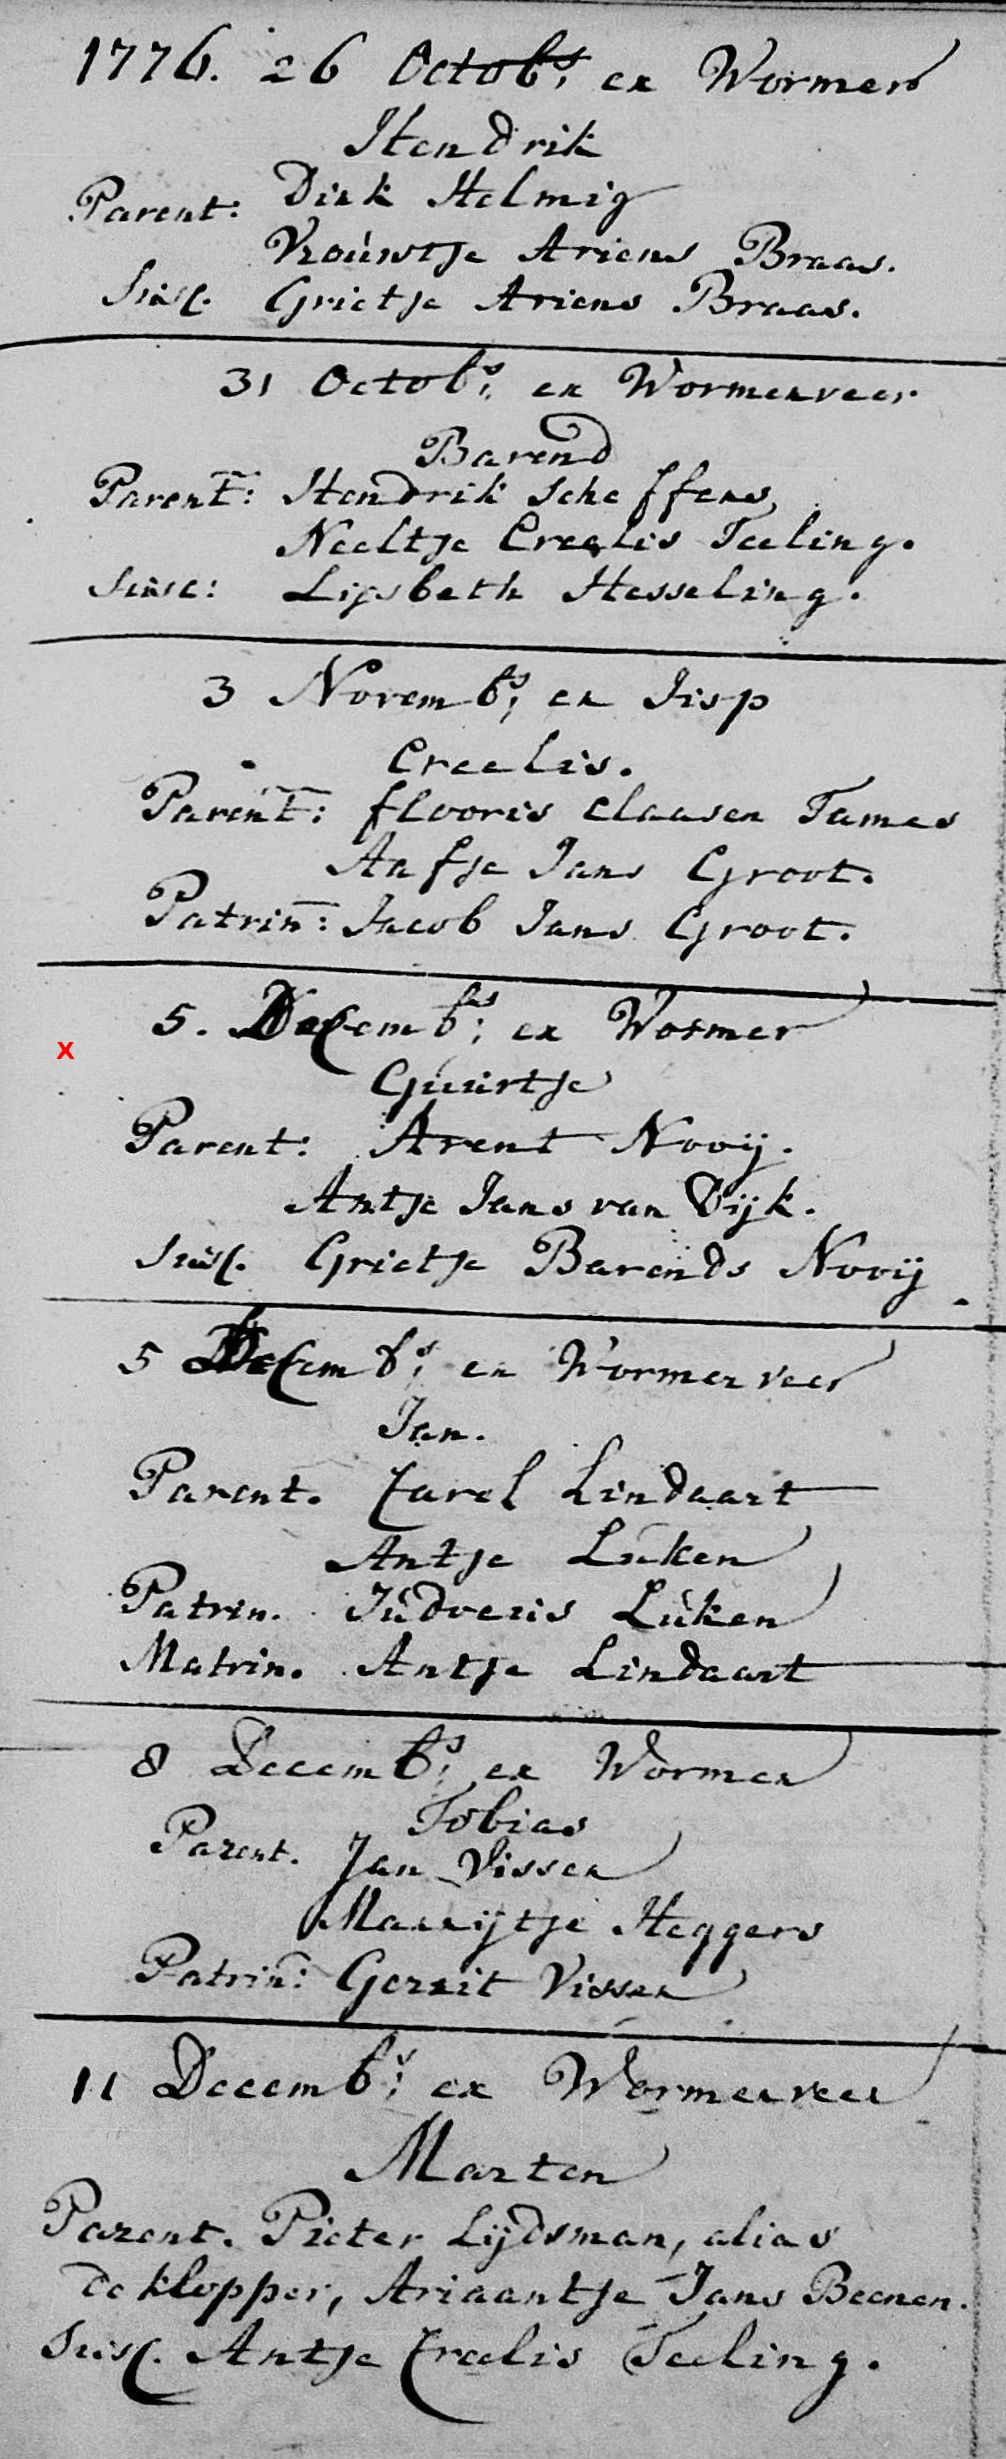 1776. 26 Octobs; ex Wormer
Hendrik
Parent: Dirk Helmig
Vrouwtje Ariens Braas.
Susc. Grietje Ariens Braas.
31 Octobs; ex Wormerveer
Barend
Parent: Hendrik Scheffens
Neeltje Creelis Teeling.
Susc: Lijsbeth Hesseling.
3 Novembs; ex Jisp
Creelis.
Parent: flooris Claasen Tames
Aafje Jans Groot.
Patrin: Jacob Jans Groot.
5. Decembs; ex Wormer
x
Guurtje
Parent: Arent Nooij.
Antje Jans van Dijk.
Susc. Grietje Barends Nooij
5 Decembs; ex Wormerveer
Jan.
Parent. Carel Lindaart
Antje Luken
Patrin. Luken
Matrin. Antje Lindaart
8 Decembs; ex Wormer
Tobias
Parent. Jan Visser
Marijtje Heggers
Patrin: Gerrit Visser
11 Decembs; ex Wormerveer
Marten
Parent. Pieter Lijdsman, alias
de klopper, Ariaantje Jans Beenen.
Susc. Antje Creelis Teeling.